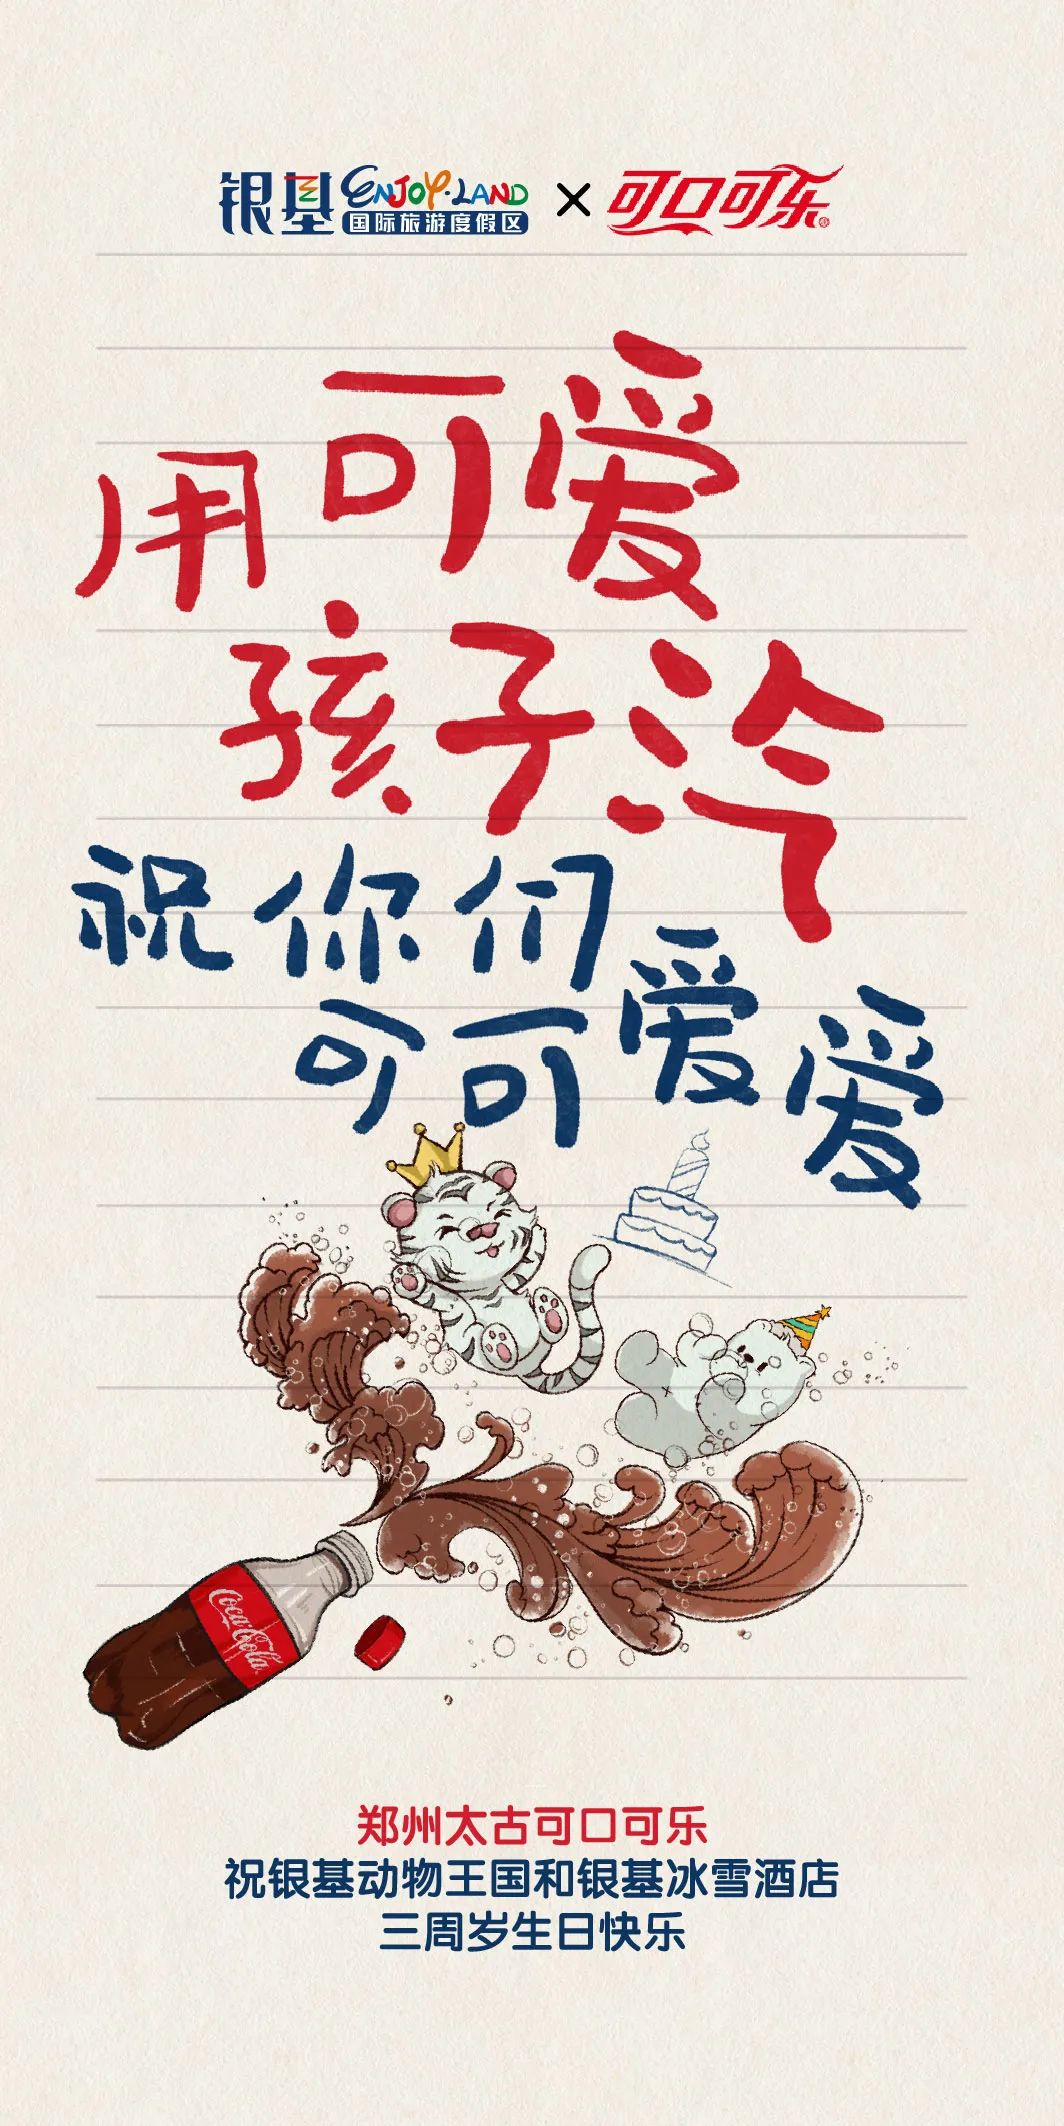 银基 ENJOY·LAND 国际旅游度假区 × 可口可乐
用可爱
孩子汽
祝你们
可可爱爱
Coca-Cola
郑州太古可口可乐
祝银基动物王国和银基冰雪酒店
三周岁生日快乐